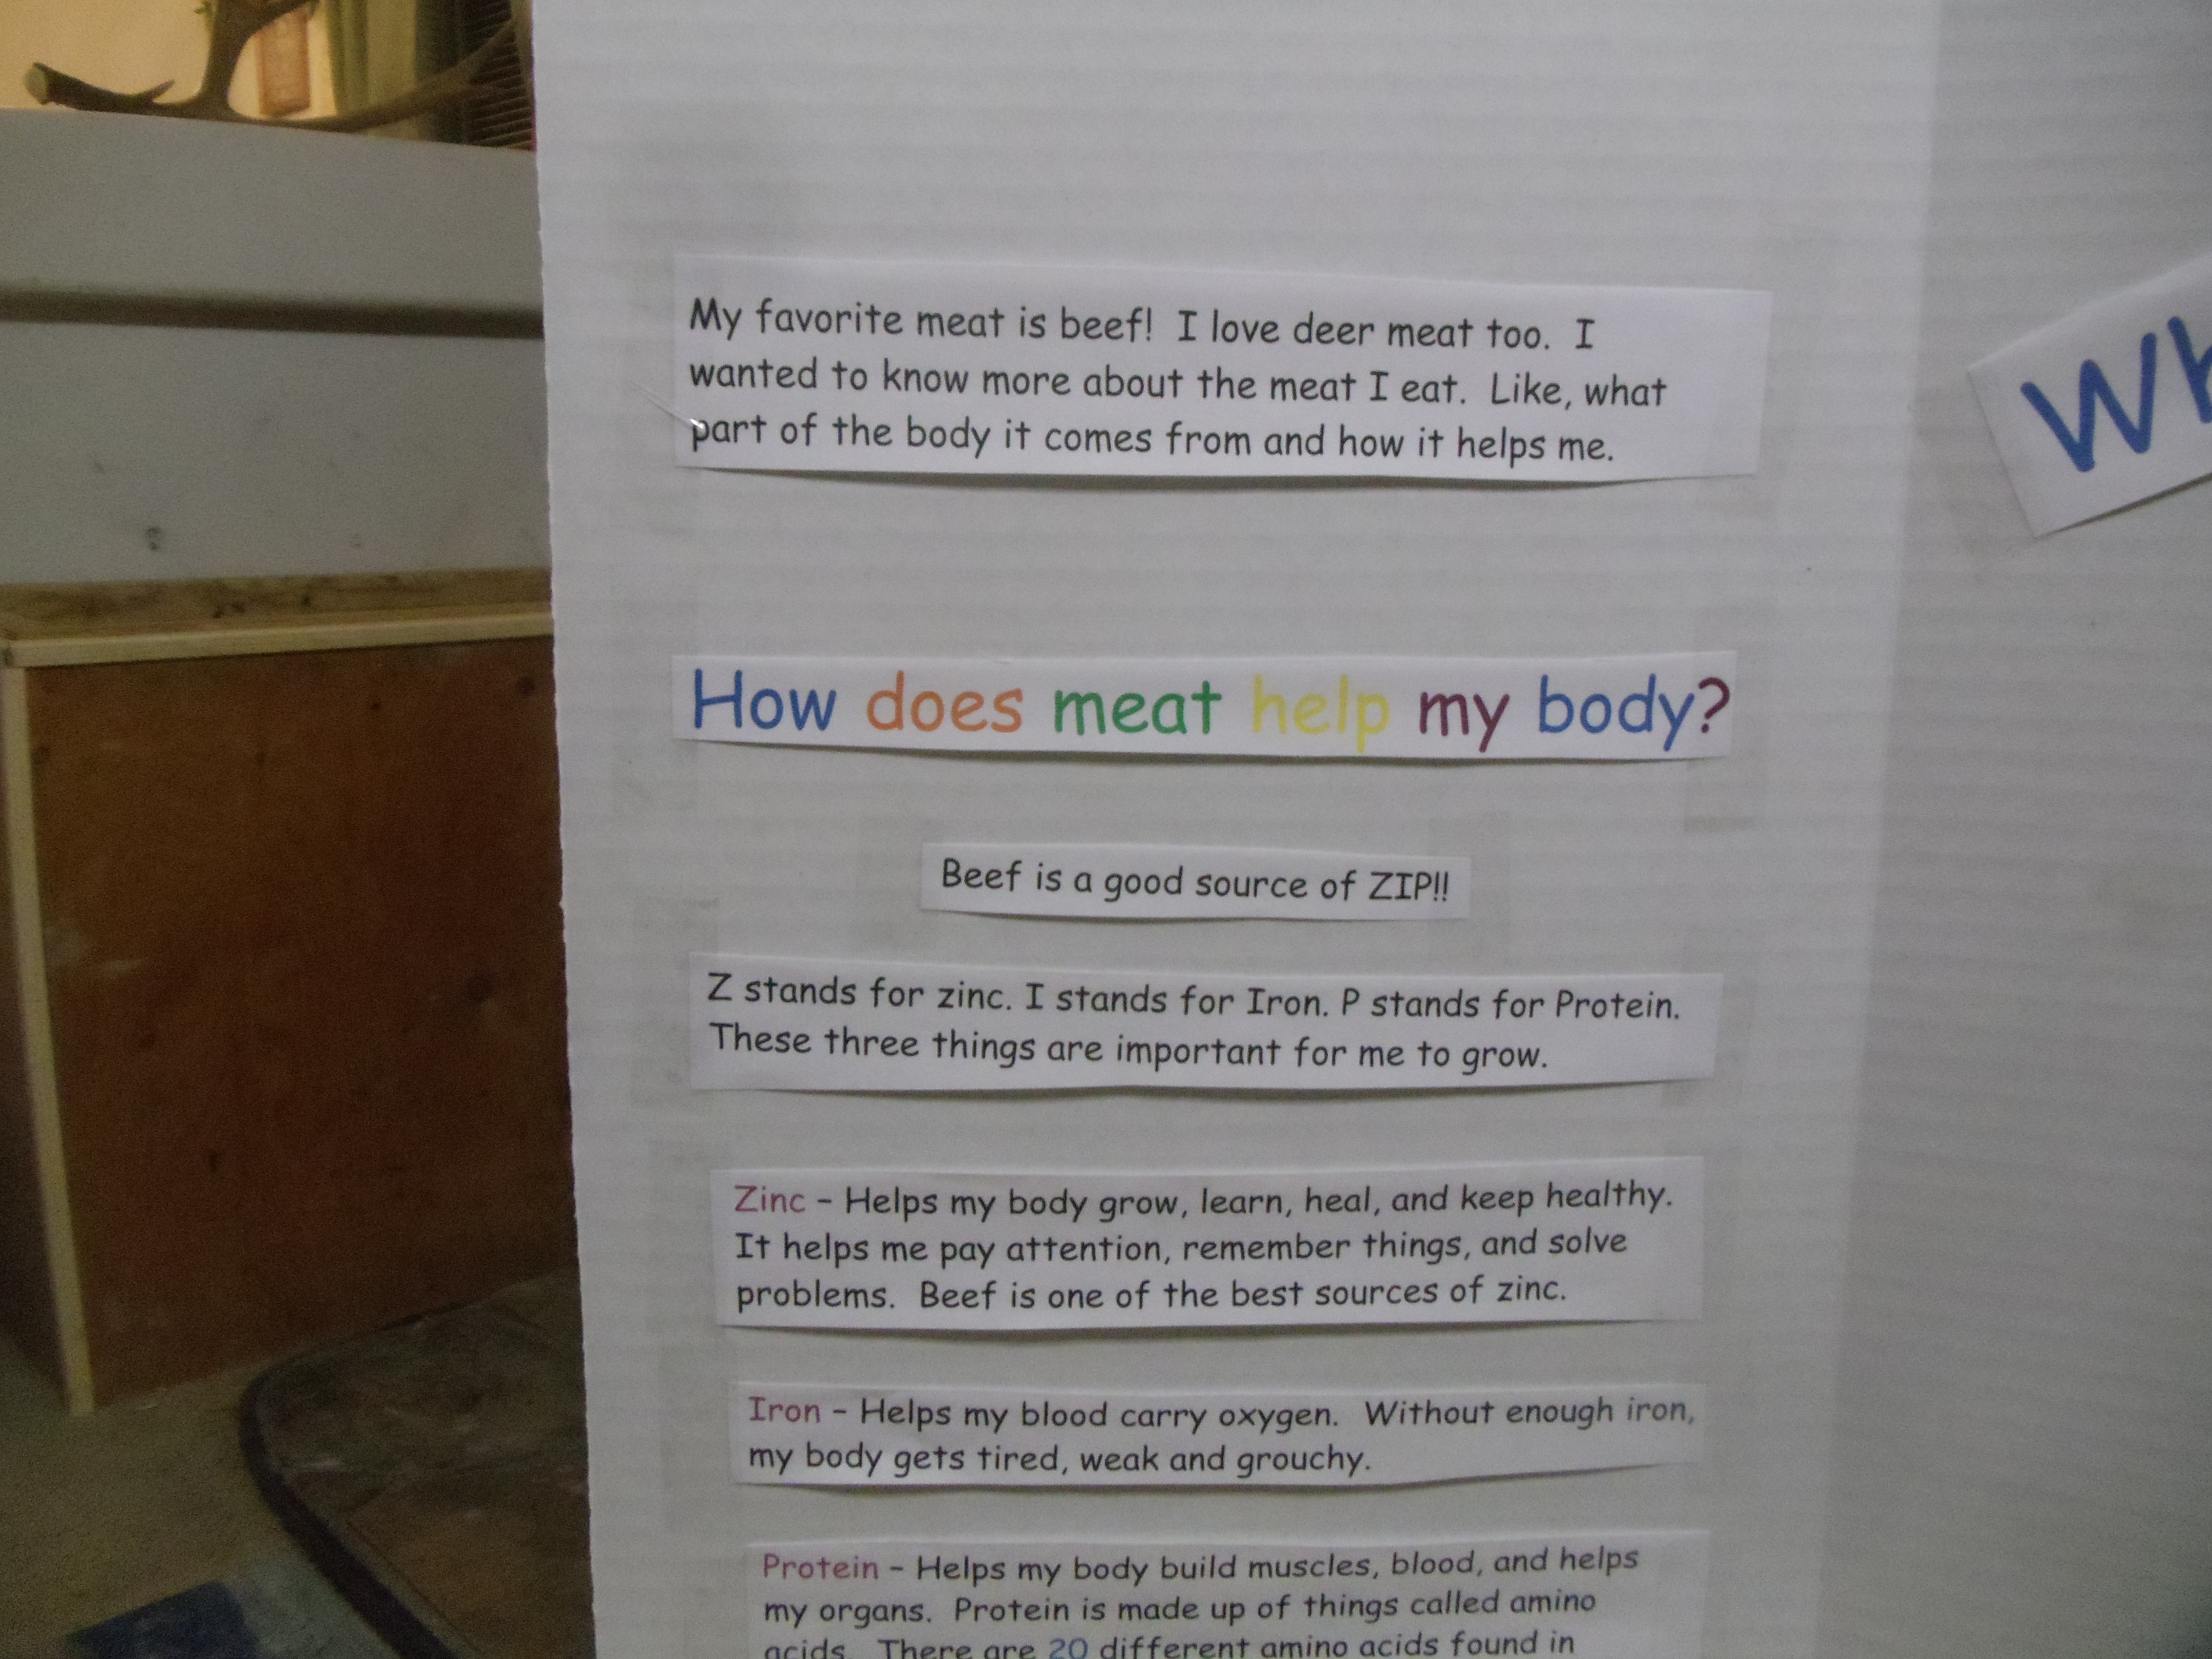 My favorite meat is beef!  I love deer meat too.  I
wanted to know more about the meat I eat.  Like, what
part of the body it comes from and how it helps me.
How does meat help my body?
Beef is a good source of ZIP!!
Z stands for zinc. I stands for Iron. P stands for Protein.
These three things are important for me to grow.
Zinc - Helps my body grow, learn, heal, and keep healthy.
It helps me pay attention, remember things, and solve
problems.  Beef is one of the best sources of zinc.
Iron - Helps my blood carry oxygen.  Without enough iron,
my body gets tired, weak and grouchy.
Protein - Helps my body build muscles, blood, and helps
my organs.  Protein is made up of things called amino
acids.  There are 20 different amino acids found in